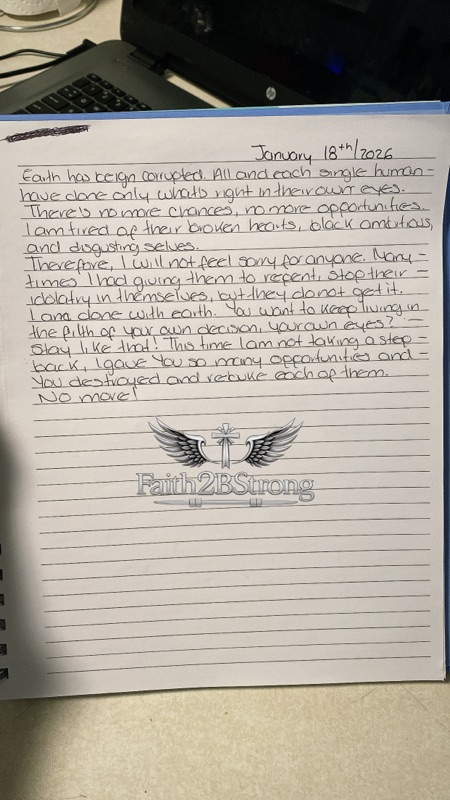 January 18th/2026
Earth has reign corrupted. All and each single human-
have done only what's right in their own eyes.
There's no more chances, no more opportunities.
I am tired of their broken hearts, black ambitious,
and disgusting selves.
Therefore, I will not feel sorry for anyone. Many-
times I had giving them to repent, stop their -
idolatry in themselves, but they do not get it.
I am done with earth. You want to keep living in
the filth of your own decision, your own eyes? -
Stay like that! This time I am not taking a step-
back, I gave You so many opportunities and-
You destroyed and rebuke each of them.
No more!
Faith2BStrong
hp